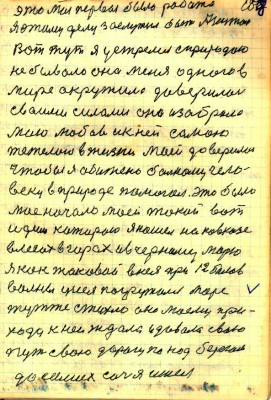 это моя первая была работа
я этому делу заслужил быть
Вот тут я устремил с природою
не бывало она меня одного в
мире окружила доверилась
своими силами она изобрала
мою любовь и к ней самою
тяжелою в жизни моей доверила
чтобы я обижено больному чело-
веку в природе помогал это было
мое начало моей такой вот
идеи которою я нашел на кавказе
в лесах в горах и в черному морю
я как таковой в нея при 12 балов
волны у нея погружался море
тут же стихло оно моему при-
ходу к ней ждала и давала свою
путь свою дорогу по над берегом
до самих сочи я шел